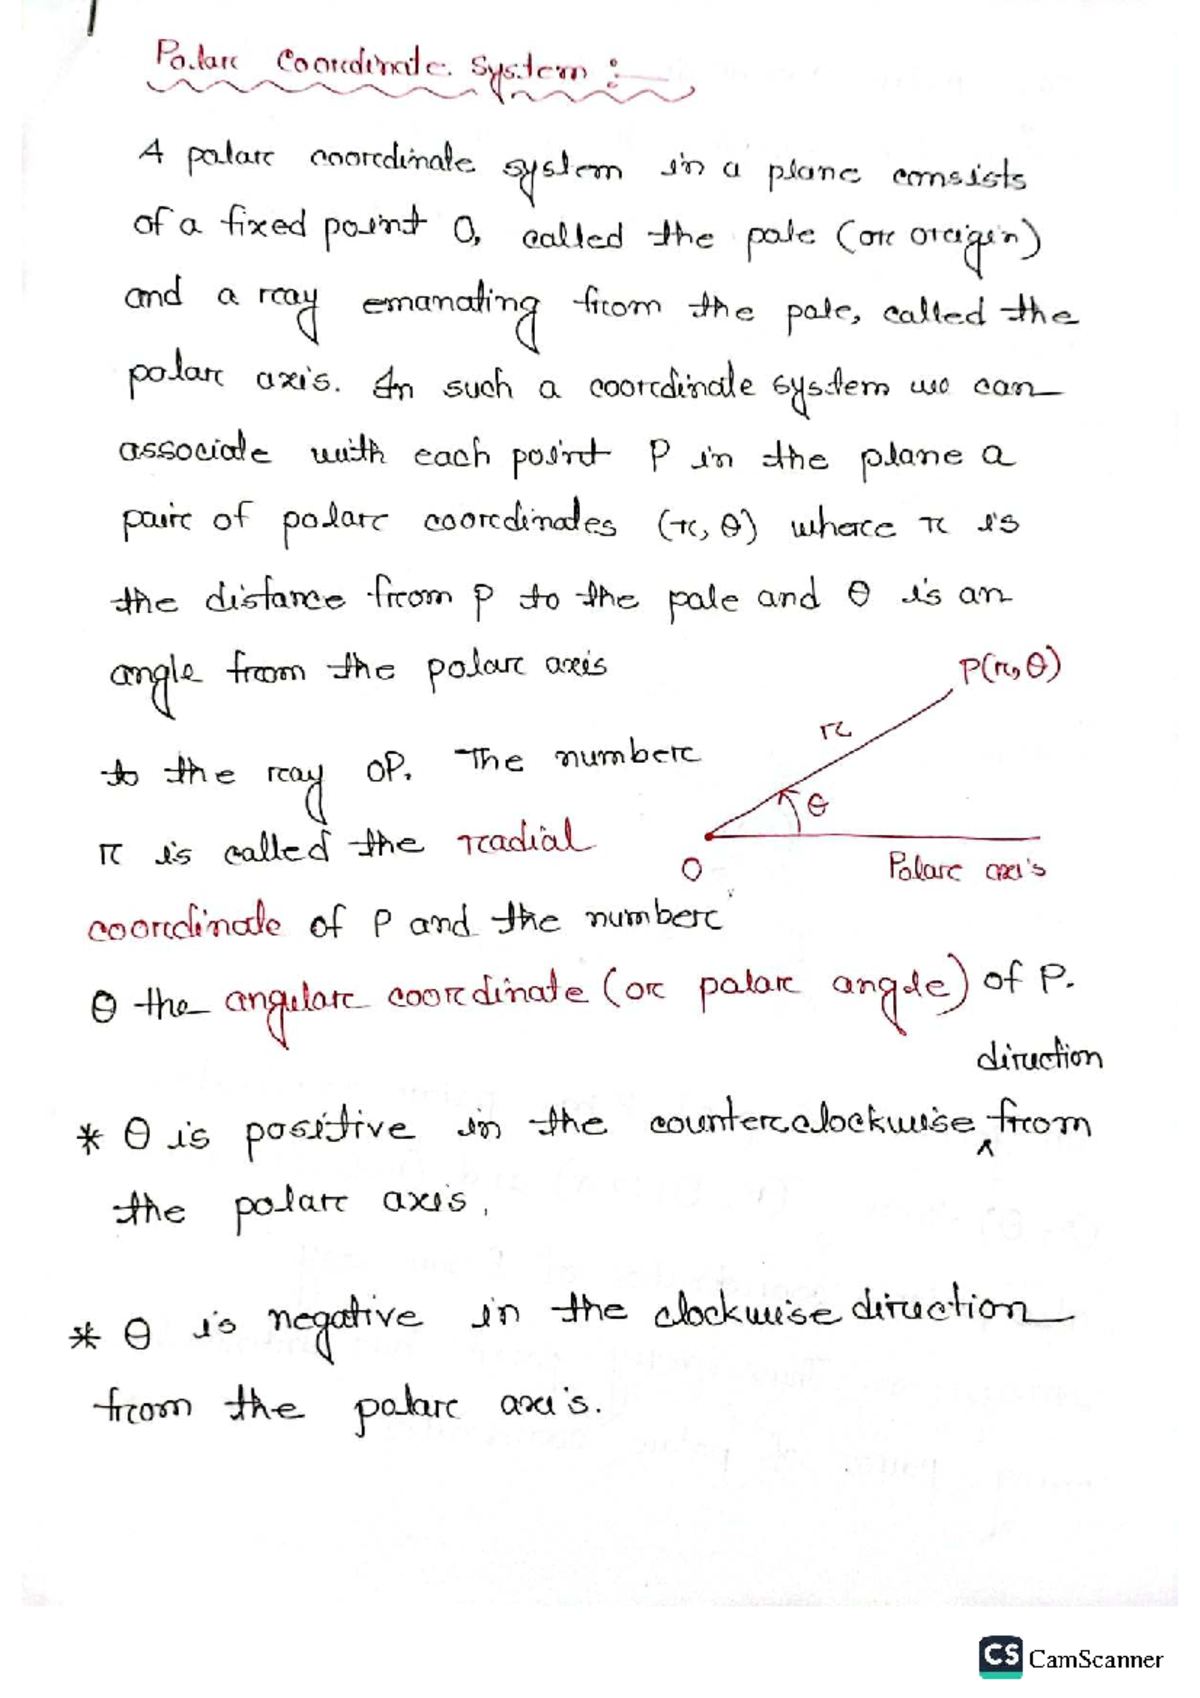 Polar Coordinate System :—
A polar coordinate system in a plane consists
of a fixed point O, called the pole (or origin)
and a ray emanating from the pole, called the
polar axis. In such a coordinate system we can
associate with each point P in the plane a
pair of polar coordinates (r, θ) where r is
the distance from P to the pole and θ is an
angle from the polar axis
P(r, θ)
r
to the ray OP. The number
θ
r is called the radial
O
Polar axis
coordinate of P and the number
θ the angular coordinate (or polar angle) of P.
direction
* θ is positive in the counterclockwise ^ from
the polar axis.
* θ is negative in the clockwise direction
from the polar axis.
CS CamScanner